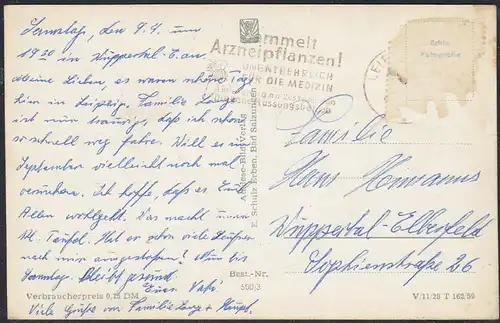 Samstag, den 9.4. um
19 30 in Wuppertal-E. an.
Meine Lieben, es waren schöne Tage
hier in Leipzig. Familie Lange
ist nur traurig, daß ich schon
so schnell weg fahre. Will es im
September vielleicht noch mal
versuchen. Ich hoffe, daß es Euch
Allen wohlgeht. Das macht
St. Teufel. Hat er schon viele
nach mir ausgestoßen? Nun bis
Samstag. Bleibt gesund
Euer Vati
Viele Grüße von Familie Lange +
Verbraucherpreis 0,25 DM
Sammelt
Arzneipflanzen!
UNENTBEHRLICH
FÜR DIE MEDIZIN
E. Schulz Erben, Bad Salzungen
Best.-Nr.
590/3
LEI
Echte
Fotografie
Familie
Hans Hermanns
Wuppertal-Elberfeld
Sophienstraße 26
V/11/28 T 162/59